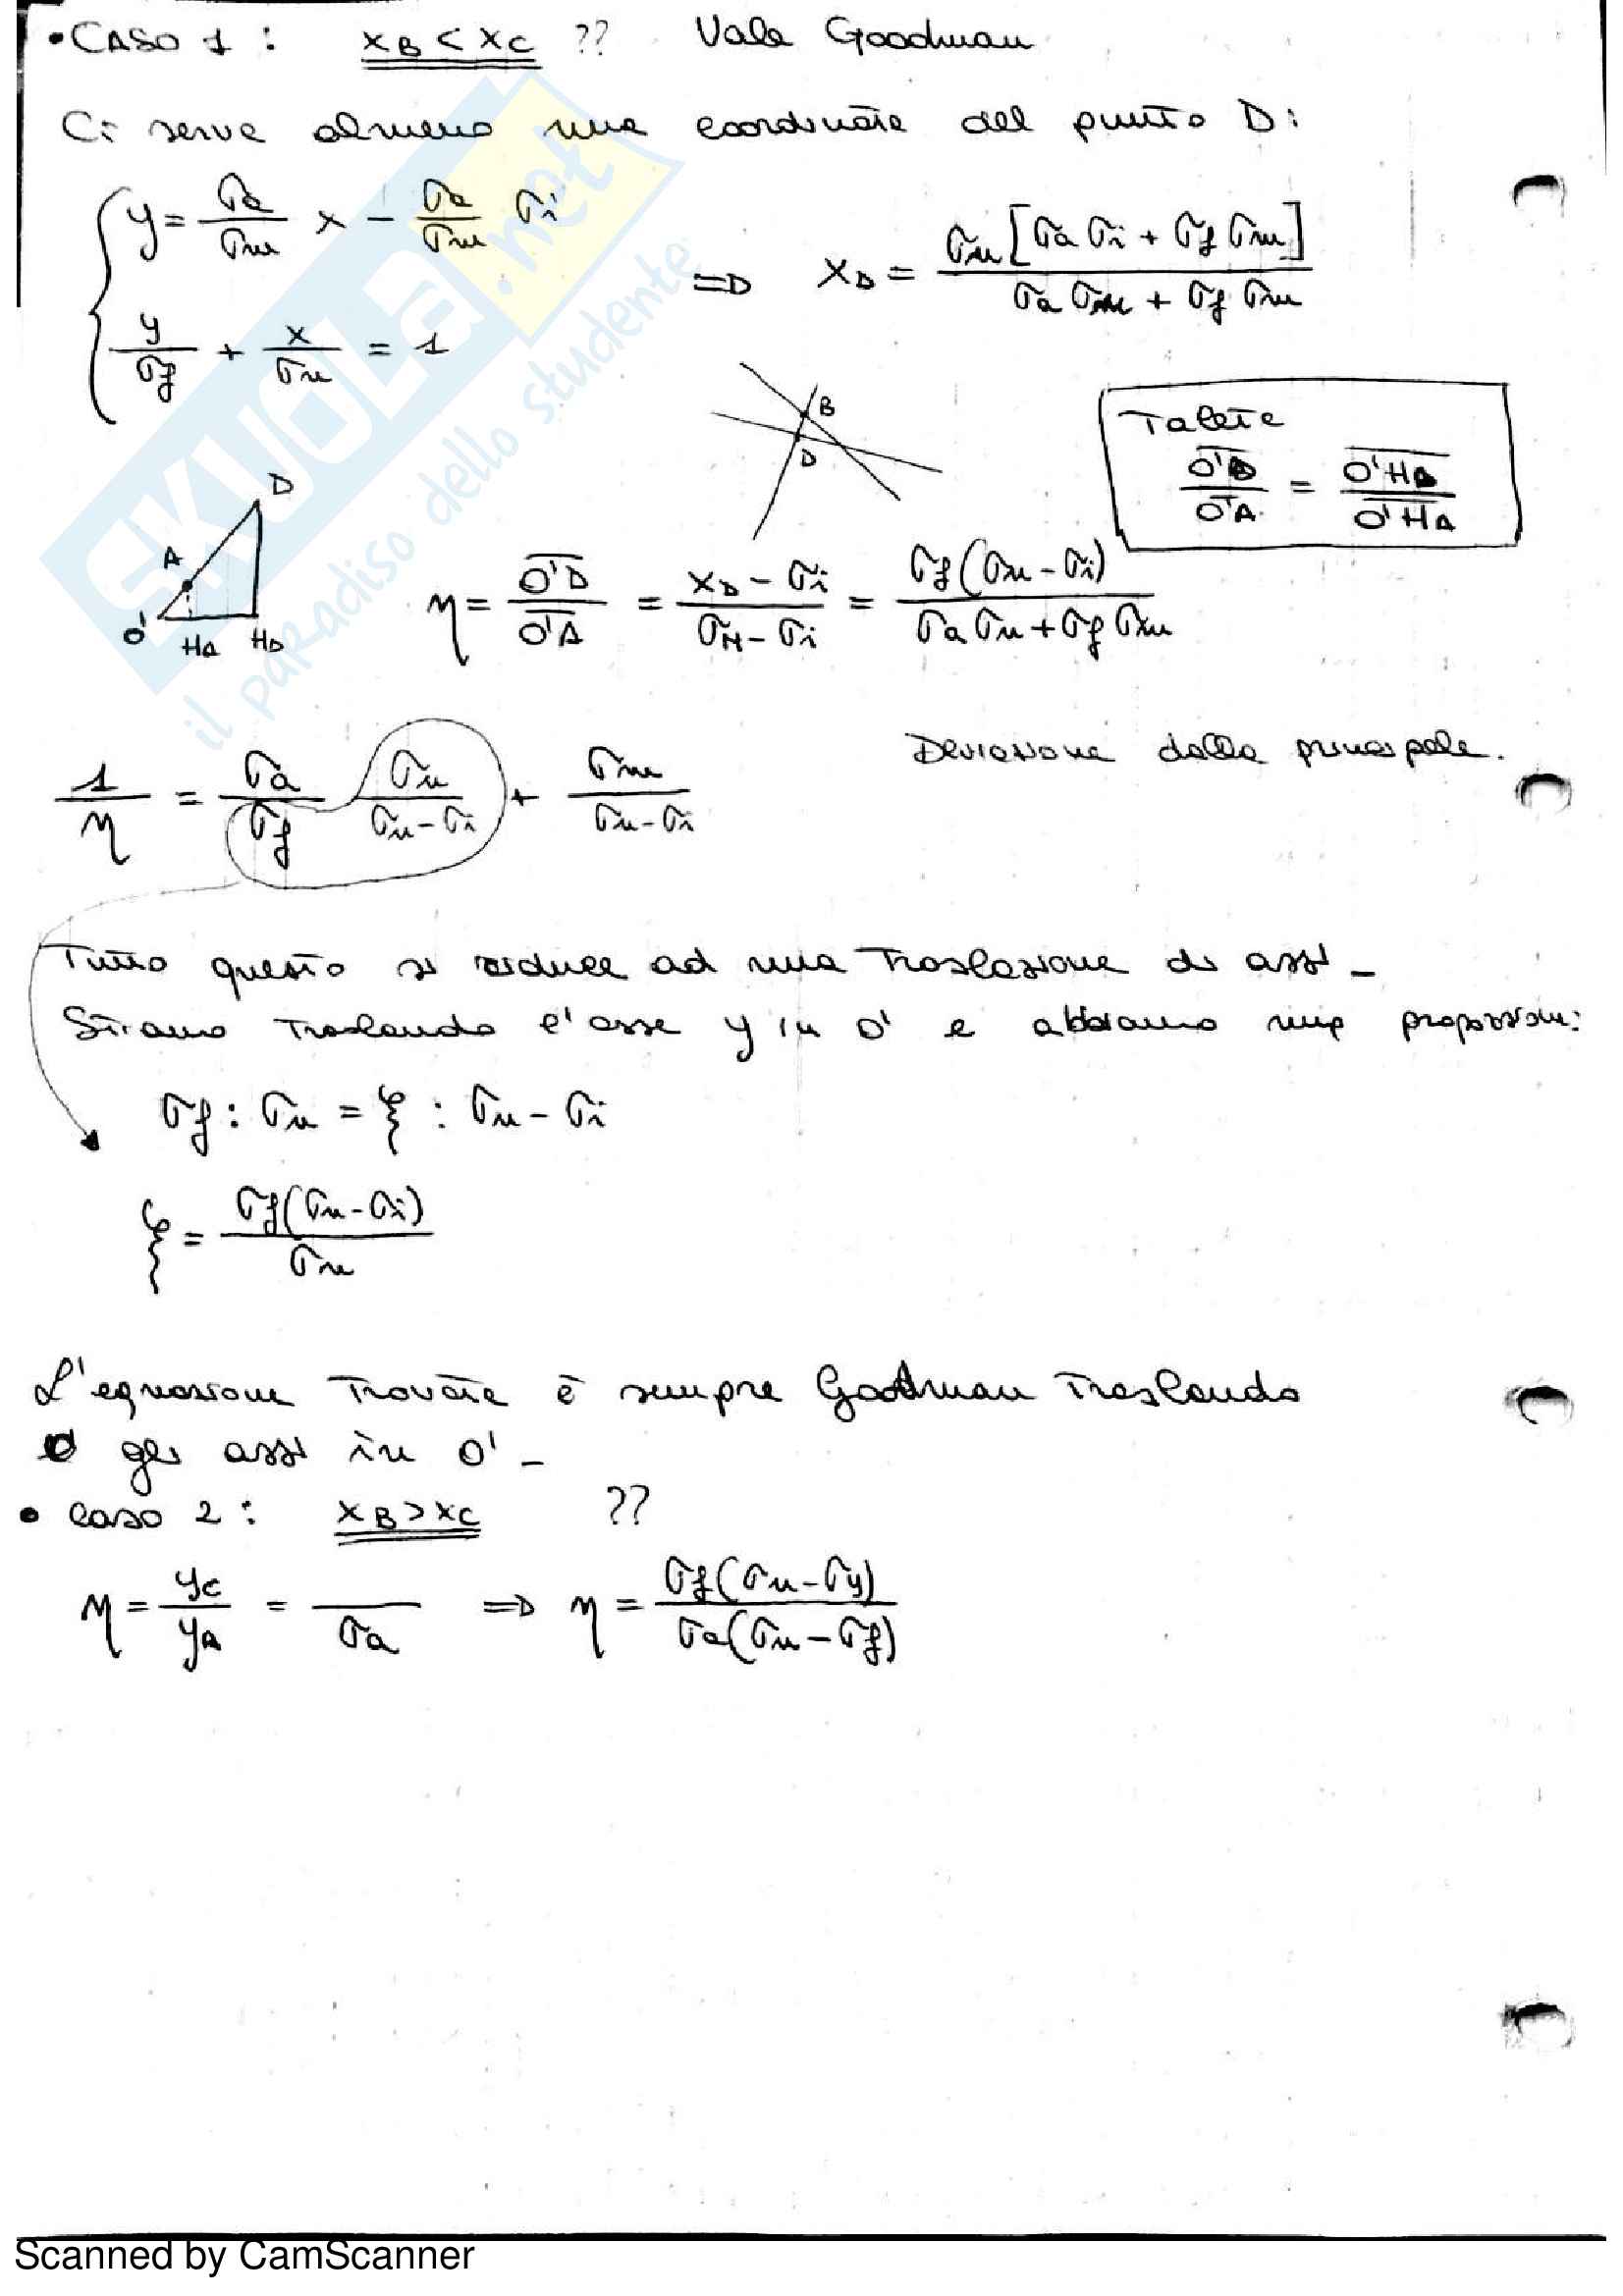 • CASO 1 : x_B < x_C ?? Vale Goodman
Ci serve almeno una coordinata del punto D:
{ y = σa/σm x − σa/σm σi
y/σf + x/σu = 1
=> x_D = σu [σa σi + σf σm] / (σa σu + σf σm)
B
D
Talete
O'D/O'A = O'H_D/O'H_A
D
A
O' H_A H_D
η = O'D/O'A = (x_D − σi)/(σM − σi) = σf(σu − σi)/(σa σu + σf σm)
1/η = σa/σf σu/(σu − σi) + σm/(σu − σi)
Deviazione dalla principale.
Tutto questo si riduce ad una traslazione di assi –
Stiamo traslando l'asse y in O' e abbiamo una proporzione:
σf : σu = ξ : σu − σi
ξ = σf(σu − σi)/σu
L'equazione trovata è sempre Goodman traslando
gli assi in O' –
• caso 2 : x_B > x_C ??
η = y_C/y_A = —/σa => η = σf(σu − σy)/σa(σu − σf)
SKUOLA.net
il paradiso dello studente
Scanned by CamScanner